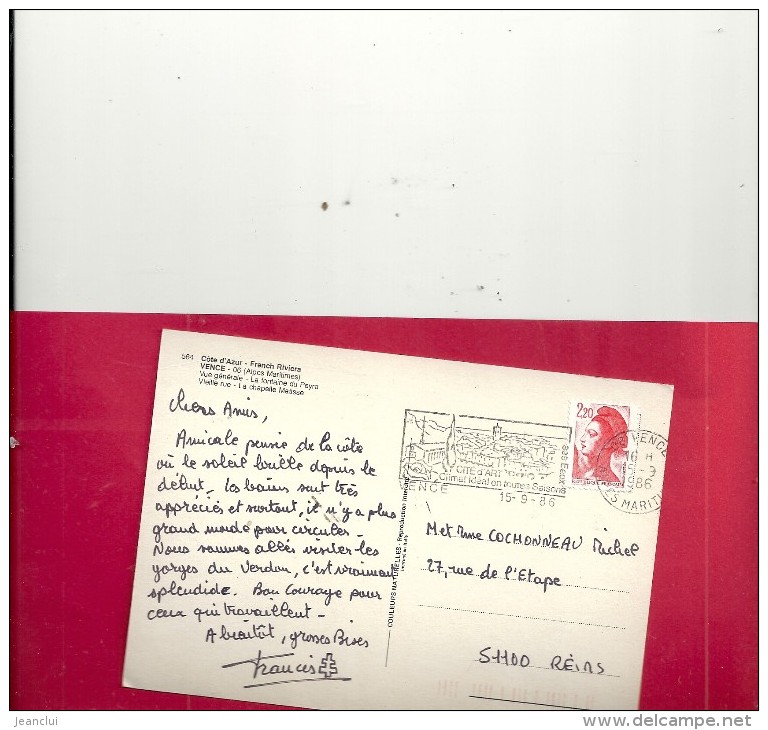 564 Côte d'Azur - French Riviera
VENCE - 06 (Alpes Maritimes)
Vue générale - La fontaine du Peyra
Vieille rue - La chapelle Matisse
Chers Amis,
Amicale pensée de la côte
où le soleil brille depuis le
début - Les bains sont très
appréciés et surtout, il n'y a plus
grand monde pour circuler -
Nous sommes allés visiter les
gorges du Verdon, c'est vraiment
splendide. Bon Courage pour
ceux qui travaillent -
A bientôt, grosses Bises
Francis
COULEURS NATURELLES - Reproduction
CITE d'ART
Climat Idéal en toutes Saisons
ses Eaux
VENCE
15-9-86
2,20
VENCE
16 H
-9
86
MARIT
M et Mme COCHONNEAU Michel
27, rue de l'Etape
51100 REIMS
jeanclui
www.delcampe.net